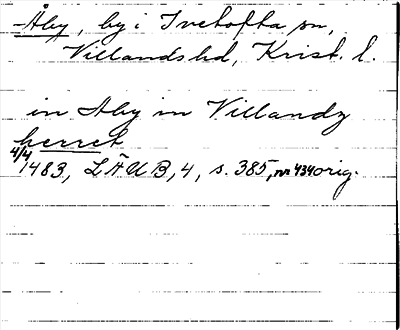 Åby, by i Ivetofta sn,
Villands hd, Krist. l.
in Aby in Villandz
herret
4/4 1483, LÄUB, 4, s. 385, nr 434 orig.